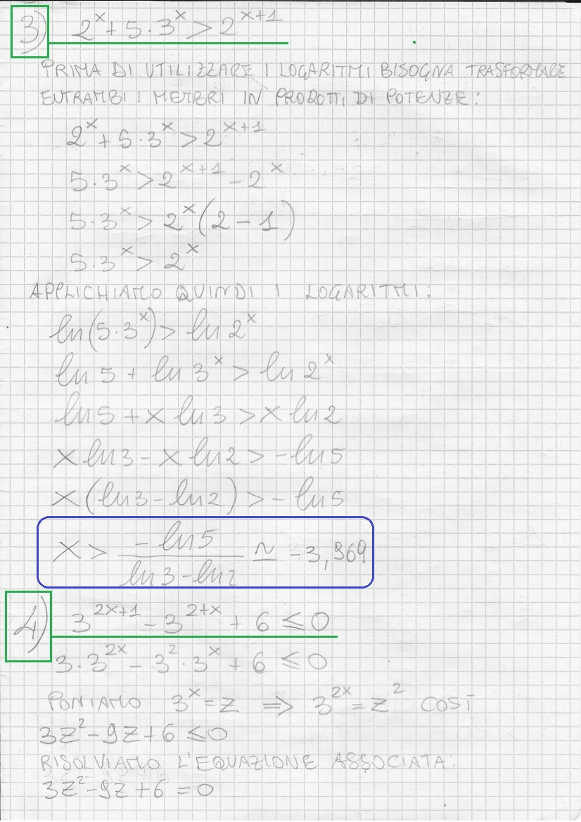 3) 2^x + 5·3^x > 2^(x+1)
PRIMA DI UTILIZZARE I LOGARITMI BISOGNA TRASFORMARE
ENTRAMBI I MEMBRI IN PRODOTTI DI POTENZE:
2^x + 5·3^x > 2^(x+1)
5·3^x > 2^(x+1) - 2^x
5·3^x > 2^x (2 - 1)
5·3^x > 2^x
APPLICHIAMO QUINDI I LOGARITMI:
ln(5·3^x) > ln 2^x
ln 5 + ln 3^x > ln 2^x
ln 5 + x ln 3 > x ln 2
x ln 3 - x ln 2 > - ln 5
x (ln 3 - ln 2) > - ln 5
x > (- ln 5)/(ln 3 - ln 2) ≃ -3,969
4) 3^(2x+1) - 3^(2+x) + 6 ≤ 0
3·3^(2x) - 3^2·3^x + 6 ≤ 0
PONIAMO 3^x = z ⇒ 3^(2x) = z^2 COSÌ
3z^2 - 9z + 6 ≤ 0
RISOLVIAMO L'EQUAZIONE ASSOCIATA:
3z^2 - 9z + 6 = 0